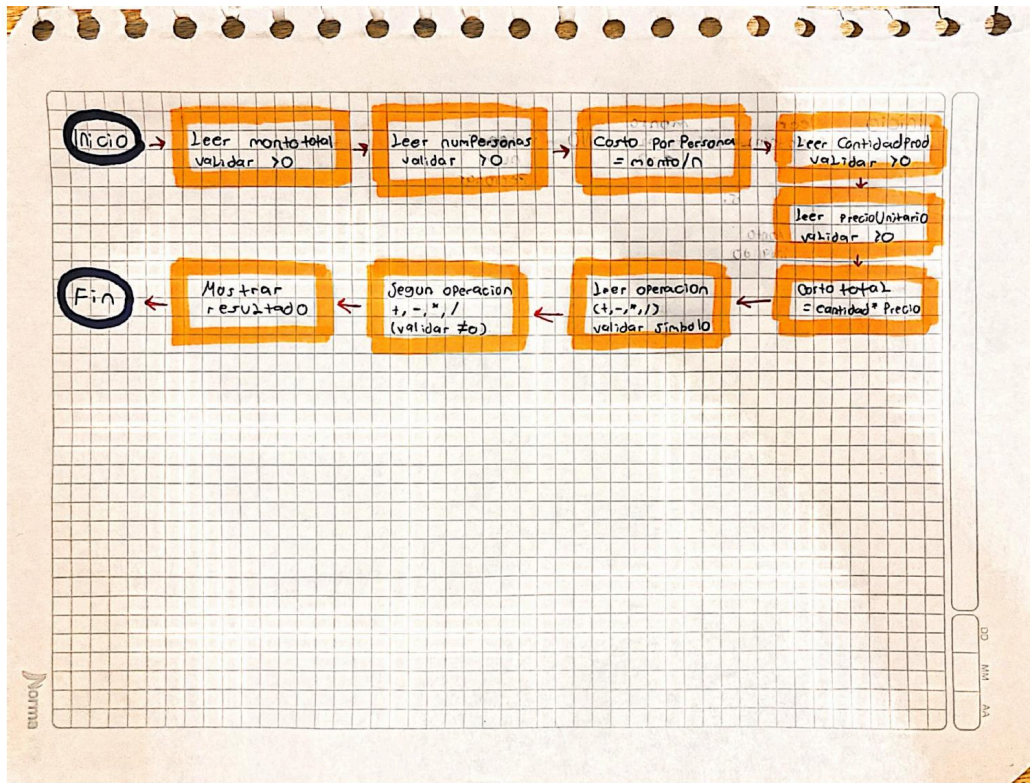 Inicio
Leer monto total
validar >0
Leer numPersonas
validar >0
Costo Por Persona
= monto/n
Leer CantidadProd
validar >0
Leer PrecioUnitario
validar >0
Costo total
= cantidad * Precio
Leer operacion
(+,-,*,/)
validar simbolo
Segun operacion
+, -, *, /
(validar ≠0)
Mostrar
resultado
Fin
DD
MM
AA
Norma